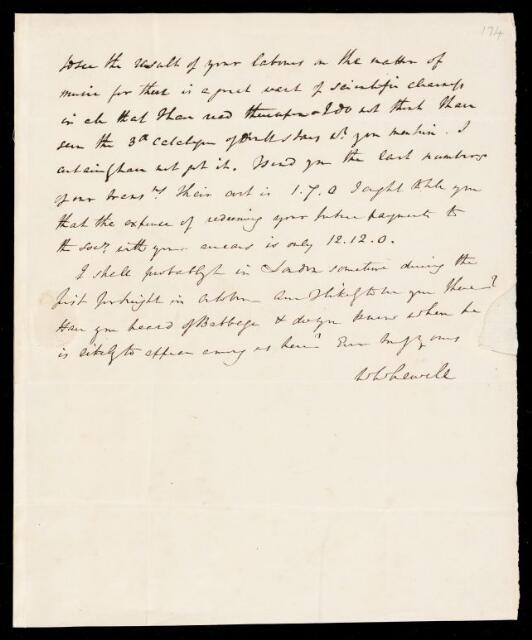 174
to see the result of your labours on the matter of
music for there is a great want of scientific clearness
in all that I have read thereupon. I do not think I have
seen the 3rd Catalogue of Double Stars wh. you mention. I
certainly have not got it. I send you the last numbers
of our Trans.ns Their cost is 1.7.0 I ought to tell you
that the expence of redeeming your future payments to
the Socy with your arrears is only 12.12.0.
I shall probably be in London sometime during the
first fortnight in October am I likely to see you there?
Have you heard of Babbage & do you know when he
is likely to appear among us here? Ever truly yours
W Whewell